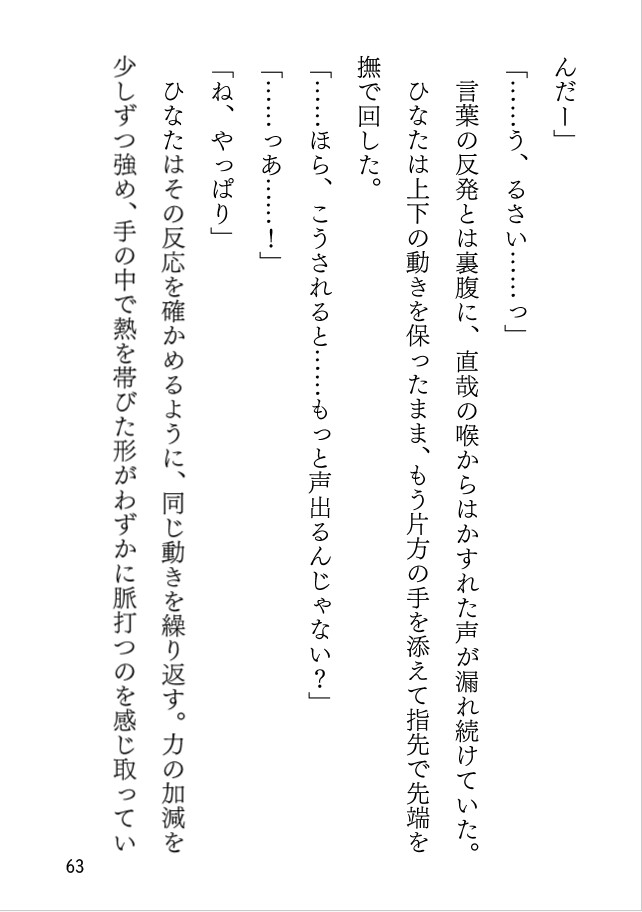 んだー」
「……う、るさい……っ」
　言葉の反発とは裏腹に、直哉の喉からはかすれた声が漏れ続けていた。
　ひなたは上下の動きを保ったまま、もう片方の手を添えて指先で先端を
撫で回した。
「……ほら、こうされると……もっと声出るんじゃない？」
「……っあ……！」
「ね、やっぱり」
　ひなたはその反応を確かめるように、同じ動きを繰り返す。力の加減を
少しずつ強め、手の中で熱を帯びた形がわずかに脈打つのを感じ取ってい
63